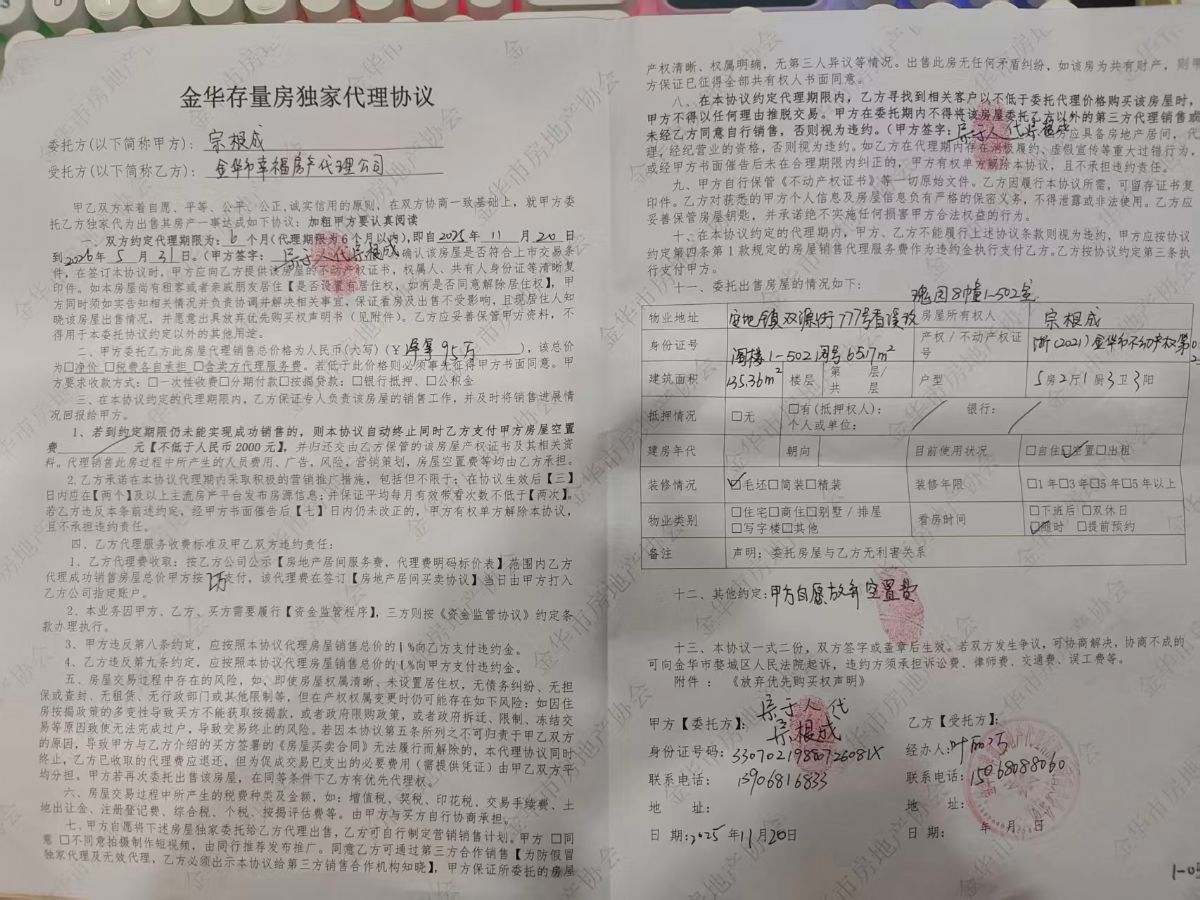 金华存量房独家代理协议
委托方(以下简称甲方)： 宗根成
受托方(以下简称乙方)： 金华市幸福房产代理公司
甲乙双方本着自愿、平等、公平、公正、诚实信用的原则，在双方协商一致基础上，就甲方委
托乙方独家代为出售其房产一事达成如下协议：加粗甲方要认真阅读
一、双方约定代理期限为：6 个月(代理期限为6个月以内)，即自 2025 年 11 月 20 日
到 2026 年 5 月 31 日。(甲方签字： 代宗根成 确认该房屋是否符合上市交易条
件，在签订本协议时，甲方应向乙方提供该房屋的不动产权证书，权属人、共有人身份证等清晰复
印件。如本房屋尚有租客或者亲戚朋友居住【是否设置有居住权，如有是否同意解除居住权】，甲
方同时须如实告知相关情况并负责协调并解决相关事宜，保证看房及出售不受影响，且现居住人知
晓该房屋出售情况，并愿意出具放弃优先购买权声明书（见附件）。乙方应妥善保管甲方资料，不
得用于本委托协议约定以外的其他用途。
二、甲方委托乙方此房屋代理销售总价格为人民币(大写)（￥ 净拿95万 ），该总价
为□净价 □税费各自承担 □含卖方代理服务费。若低于此价格则必须事先征得甲方书面同意。甲
方要求收款方式：□一次性收费□分期付款□按揭贷款：□银行抵押、□公积金
三、在本协议约定的代理期限内，乙方保证专人负责该房屋的销售工作，并及时将销售进展情
况回报给甲方。
1、若到约定期限仍未能实现成功销售的，则本协议自动终止同时乙方支付甲方房屋空置
费 / 元【不低于人民币2000元】，并归还交由乙方保管的该房屋产权证书及其相关资
料。代理销售此房过程中所产生的人员费用、广告，风险，营销策划，房屋空置费等均由乙方承担。
2. 乙方承诺在本协议代理期限内采取积极的营销推广措施，包括但不限于：在协议生效后【三】
日内应在【两个】及以上主流房产平台发布房源信息；并保证平均每月有效带看次数不低于【两次】。
若乙方违反本条前述约定，经甲方书面催告后【七】日内仍未改正的，甲方有权单方解除本协议，
且不承担违约责任。
四、乙方代理服务收费标准及甲乙双方违约责任：
1、乙方代理费收取：按乙方公司公示【房地产居间服务费，代理费明码标价表】范围内乙方
代理成功销售房屋总价甲方按 支付，该代理费在签订【房地产居间买卖协议】当日由甲方打入
乙方公司指定账户。
2、本业务因甲方、乙方、买方需要履行【资金监管程序】，三方则按《资金监管协议》约定条
款办理执行。
3、甲方违反第八条约定，应按照本协议代理房屋销售总价的1%向乙方支付违约金。
4、乙方违反第九条约定，应按照本协议代理房屋销售总价的1%向甲方支付违约金。
五、房屋交易过程中存在的风险，如、即使房屋权属清晰、未设置居住权，无债务纠纷、无担
保或查封、无租赁、无行政部门或其他限制等，但在产权权属变更时仍可能存在如下风险：如因住
房按揭政策的多变性导致买方不能获取按揭款，或者政府限购政策，或者政府拆迁、限制、冻结交
易等原因致使无法完成过户，导致交易终止的风险。若因本协议第五条所列之不可归责于甲乙双方
的原因，导致甲方与乙方介绍的买方签署的《房屋买卖合同》无法履行而解除的，本代理协议同时
终止，乙方已收取的代理费应退还，但为促成交易已支出的必要费用(需提供凭证)由甲乙双方平
均分担。甲方若再次委托出售该房屋，在同等条件下乙方有优先代理权。
六、房屋交易过程中所产生的税费种类及金额，如：增值税、契税、印花税、交易手续费、土
地出让金、注册登记费、综合税、个税、按揭评估费等。由甲方与买方自行协商承担。
七、甲方自愿将下述房屋独家委托给乙方代理出售，乙方可自行制定营销销售计划。甲方 □同
意 □不同意拍摄制作短视频，由同行推荐发布推广。同意乙方可通过第三方合作销售【为防假冒
独家代理及无效代理，乙方必须出示本协议给第三方销售合作机构知晓】，甲方保证所委托的房屋
产权清晰、权属明确，无第三人异议等情况。出售此房无任何矛盾纠纷，如该房为共有财产，则甲
方保证已征得全部共有权人书面同意。
八、在本协议约定代理期限内，乙方寻找到相关客户以不低于委托代理价格购买该房屋时，
甲方不得以任何理由推脱交易。甲方在委托期内不得将该房屋委托乙方以外的第三方代理销售或
未经乙方同意自行销售，否则视为违约。(甲方签字： 代宗根成 方应具备房地产居间，代
理，经纪营业的资格，否则视为违约。如乙方在代理期内存在消极履约、虚假宣传等重大过错行为，
或经甲方书面催告后未在合理期限内纠正的，甲方有权单方解除本协议，且不承担违约责任。
九、甲方自行保管《不动产权证书》等一切原始文件。乙方因履行本协议所需，可留存证书复
印件。乙方对获悉的甲方个人信息及房屋信息负有严格的保密义务，不得泄露或非法使用。乙方应
妥善保管房屋钥匙，并承诺绝不实施任何损害甲方合法权益的行为。
十、在本协议约定的代理期内，甲方、乙方不能履行上述协议条款则视为违约，甲方应按协议
约定第四条第1款规定的房屋销售代理服务费作为违约金执行支付乙方。乙方按协议约定第三条执
行支付甲方。
十一、委托出售房屋的情况如下：
瑰园8幢1-502室
物业地址 安地镇双源街777号香溪玫 房屋所有权人 宗根成
身份证号 阁楼1-502 65.17m² 产权/不动产权证号 浙(2021)金华市不动产权第
建筑面积 135.36m² 楼层 第 层/共 层 户型 5房2厅1厨3卫3阳
抵押情况 □无 □有(抵押权人)： 个人或单位： / 银行： /
建房年代 朝向 目前使用状况 □自住☑空置□出租
装修情况 ☑毛坯□简装□精装 装修年限 □1年□3年□5年□5年以上
物业类别 □住宅□商住□别墅/排屋 □写字楼□其他 看房时间 □下班后 □双休日 ☑随时 □提前预约
备注 声明：委托房屋与乙方无利害关系
十二、其他约定：甲方自愿放弃空置费
十三、本协议一式二份，双方签字或盖章后生效。若双方发生争议，可协商解决，协商不成的
可向金华市婺城区人民法院起诉，违约方须承担诉讼费、律师费、交通费、误工费等。
附件：《放弃优先购买权声明》
甲方【委托方】： 代宗根成
乙方【受托方】：
身份证号码：33070219880726081X
经办人：叶
联系电话：13906816833
联系电话：15068088060
地 址：
地 址：
日 期：2025 年 11 月 20 日
日 期： 年 月 日